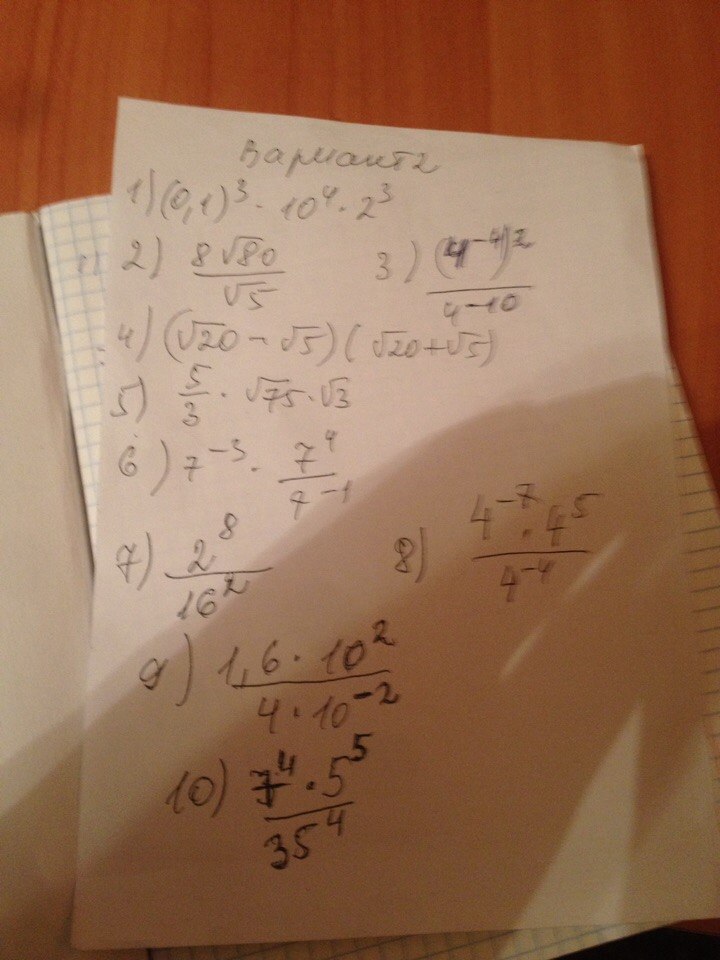 Вариант 2
1) (0,1)³ · 10⁴ · 2³
2) 8√80 / √5 3) (4⁻⁴)² / 4⁻¹⁰
4) (√20 - √5)(√20+√5)
5) 5/3 · √75 · √3
6) 7⁻³ · 7⁴ / 7⁻¹
7) 2⁸ / 16² 8) 4⁻⁷ · 4⁵ / 4⁻⁴
9) 1,6 · 10² / 4 · 10⁻²
10) 7⁴ · 5⁵ / 35⁴